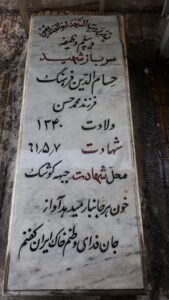 سرباز شهید
حسام الدین فرهنگ
فرزند محمد حسن
ولادت ۱۳۴۰
شهادت ۶۱٫۵٫۷
محل شهادت جبهه کوشک
خون بهر جا نبار سید بد آواز
جان فدای وطنم خاک ایران کفنم